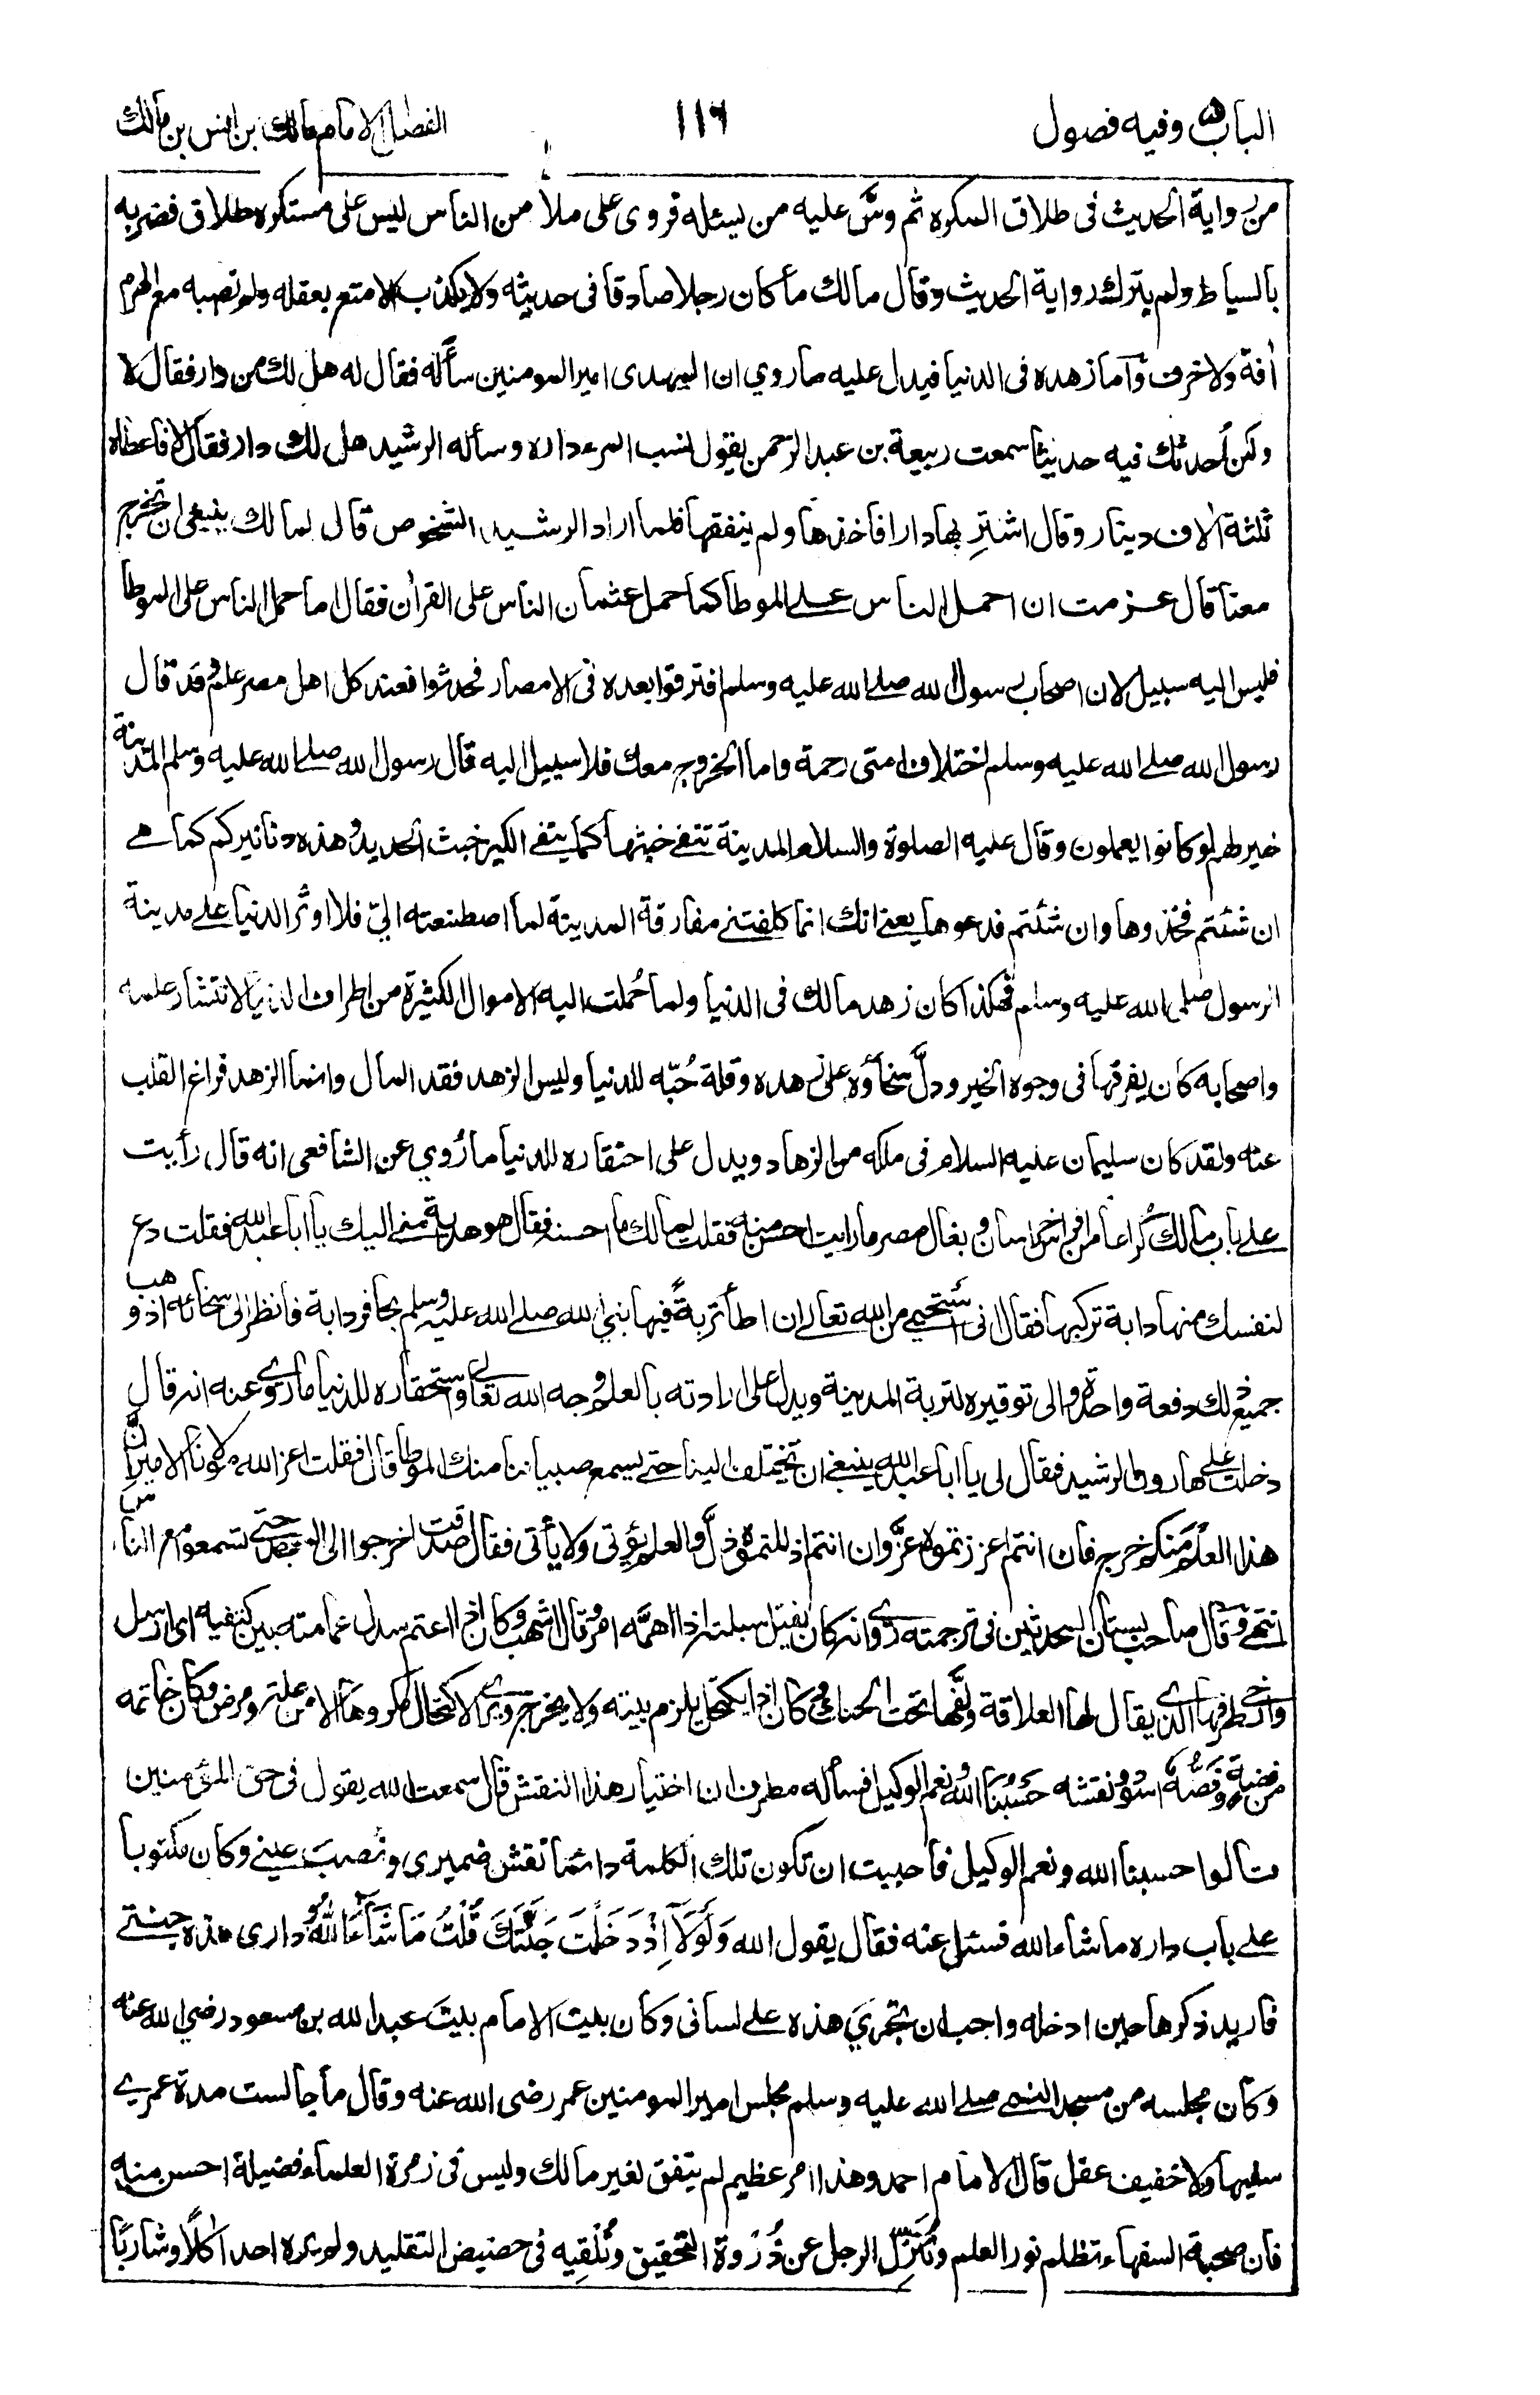 الباب ٥ وفيه فصول
١١٦
الفصل الامام مالك بن انس بن مالك
من رواية الحديث فى طلاق المكره ثم دسّ عليه من يسئله فروى على ملأ من الناس ليس على مستكره طلاق فضربه
بالسياط ولم يترك رواية الحديث وقال مالك ما كان رجلا صادقا فى حديثه ولا يكذب الا متع بعقله ولم تصبه مع الهرم
أفة ولا خرف وأما زهده فى الدنيا فيدل عليه ما روي ان المهدى امير المومنين سأله فقال له هل لك من دار فقال لا
ولكن أحدثك فيه حديثا سمعت ربيعة بن عبد الرحمن يقول نسب المرء داره وسأله الرشيد هل لك دار فقال لا فاعطاه
ثلثة ألاف دينار وقال اشترِ بها دارا فاخذها ولم ينفقها فلما اراد الرشيد الشخوص قال لمالك ينبغى ان تخرج
معنا قال عزمت ان احمل الناس على الموطا كما حمل عثمان الناس على القرأن فقال اما حمل الناس على الموطا
فليس اليه سبيل لان اصحاب رسول الله صلى الله عليه وسلم افترقوا بعده فى الامصار فحدثوا فعند كل اهل مصر علم وقد قال
رسول الله صلى الله عليه وسلم اختلاف امتى رحمة واما الخروج معك فلا سبيل اليه قال رسول الله صلى الله عليه وسلم المدينة
خير لهم لو كانوا يعلمون وقال عليه الصلوة والسلام المدينة تنفى خبثها كما ينفى الكير خبث الحديد وهذه دنانيركم كما هى
ان شئتم فخذوها وان شئتم فدعوها يعنى انك انما كلفتنى مفارقة المدينة لما اصطنعته اليّ فلا اوثر الدنيا على مدينة
الرسول صلى الله عليه وسلم فهكذا كان زهد مالك فى الدنيا ولما حُملت اليه الاموال الكثيرة من اطراف الدنيا لانتشار علمه
واصحابه كان يفرقها فى وجوه الخير ودلّ سخاؤه على زهده وقلة حُبّه للدنيا وليس الزهد فقد المال وانما الزهد فراغ القلب
عنه ولقد كان سليمان عليه السلام فى ملكه من الزهاد ويدل على احتقاره للدنيا ما رُوي عن الشافعى انه قال رأيت
على باب مالك كُراعا من افراس خراسان وبغال مصر ما رايت احسن منه فقلت لمالك ما احسنه فقال هو هدية منى اليك يا ابا عبد الله فقلت دع
لنفسك منها دابة تركبها فقال انى أستحيي من الله تعالى ان اطأ تربةً فيها نبي الله صلى الله عليه وسلم بحافر دابة فانظر الى سخائه اذ وهب
جميع ذلك دفعة واحدة والى توقيره لتربة المدينة ويدل على ارادته بالعلم وجه الله تعالى واستحقاره للدنيا ما روى عنه انه قال
دخلت على هارون الرشيد فقال لى يا ابا عبد الله ينبغى ان تختلف الينا حتى يسمع صبياننا منك الموطا قال فقلت اعز الله مولانا الامير انّ
هذا العلم منكم خرج فان انتم اعززتموه عزّ وان انتم اذللتموه ذلّ والعلم يؤتى ولا يأتى فقال صدقت اخرجوا الى المسجد حتى تسمعوا مع الناس
انتهى وقال صاحب بستان المحدثين فى ترجمته روى انه كان يفتل سبلته اذا اهمّه امر وقال اشهب وكان اذا اعتم سدل عمامته بين كتفيه اى ارسل
وارخى طرفها الذى يقال لها العلاقة ولفّها تحت الحنك وكان اذا يكتحل يلزم بيته ولا يخرج ويرى الاكتحال مكروها الا من علة ومرض وكان خاتمه
من فضة وفَصُّهُ اسود ونقشه حَسْبُنَا الله ونعم الوكيل فسأله مطرف ان اختيار هذا النقش قال سمعت الله يقول فى حق المؤمنين
قالوا حسبنا الله ونعم الوكيل فاحببت ان تكون تلك الكلمة دائما نقش ضميرى ونُصبَ عينى وكان مكتوبا
على باب داره ماشاء الله فسئل عنه فقال يقول الله وَلَوْلَا إِذْ دَخَلْتَ جَنَّتَكَ قُلْتَ مَا شَآءَ اللهُ ودارى هذه جنتى
فاريد ذكرها حين ادخله واحب ان تجرى هذه على لسانى وكان بيت الامام بيت عبد الله بن مسعود رضي الله عنه
وكان مجلسه من مسجد النبى صلى الله عليه وسلم مجلس امير المومنين عمر رضى الله عنه وقال ما جالست مدة عمرى
سفيها ولا خفيف عقل قال الامام احمد وهذا امر عظيم لم يتفق لغير مالك وليس فى زمرة العلماء فضيلة احسن منه
فان صحبة السفهاء تظلم نور العلم وتُنَزِّل الرجل عن ذُرْوة التحقيق وتُلْقِيه فى حضيض التقليد ولم يره احد أكلًا وشاربًا